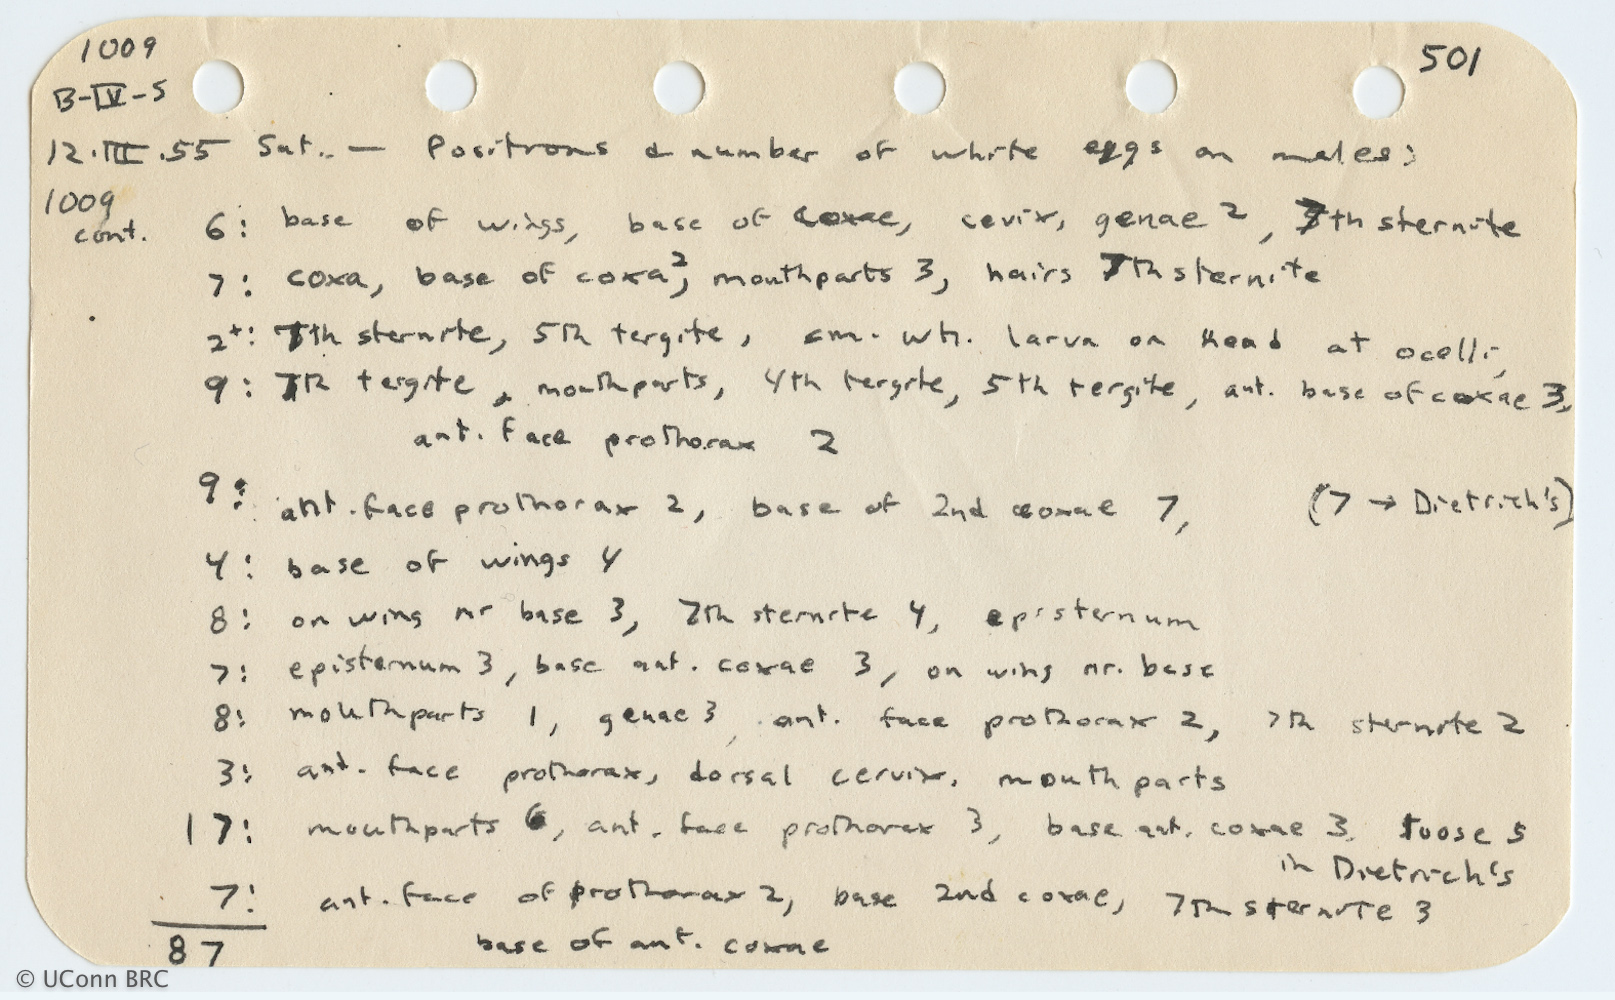 1009
501
B-IV-5
12.III.55 Sat. — Positions & number of white eggs on males:
1009
cont.
6: base of wings, base of coxae, cevix, genae 2, 7th sternite
7: coxa, base of coxa 2, mouthparts 3, hairs 7th sternite
2+: 7th sternite, 5th tergite, sm. wh. larva on head at ocelli,
9: 7th tergite, mouthparts, 4th tergite, 5th tergite, ant. base of coxae 3,
ant. face prothorax 2
9: ant. face prothorax 2, base of 2nd coxae 7, (7 → Dietrich's)
4: base of wings 4
8: on wing nr base 3, 7th sternite 4, episternum
7: episternum 3, base ant. coxae 3, on wing nr. base
8: mouthparts 1, genae 3, ant. face prothorax 2, 7th sternite 2
3: ant. face prothorax, dorsal cervix, mouthparts
17: mouthparts 6, ant. face prothorax 3, base ant. coxae 3, loose 5
in Dietrich's
7: ant. face of prothorax 2, base 2nd coxae, 7th sternite 3
base of ant. coxae
87
© UConn BRC